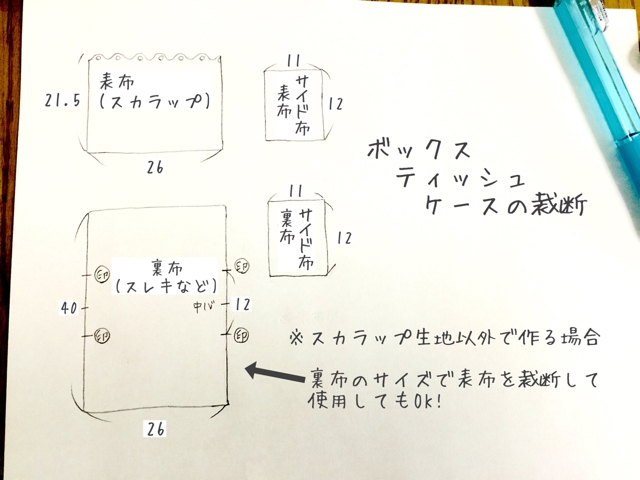 表布
(スカラップ)
21.5
26
11
サイド布
表布
12
ボックス
ティッシュ
ケースの裁断
11
サイド布
裏布
12
裏布
(スレキなど)
印
印
印
印
40
中心
12
26
※スカラップ生地以外で作る場合
裏布のサイズで表布を裁断して
使用してもOK!